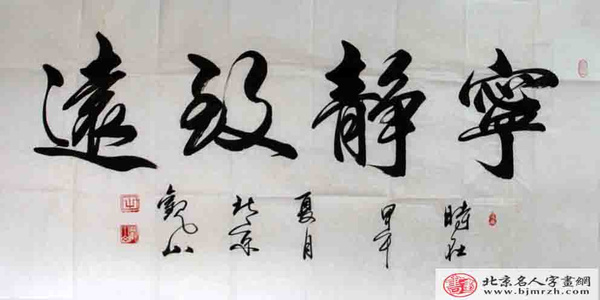 寧靜致遠
時在
甲午
夏月
北京
觀山
北京名人字畫網
www.bjmrzh.com